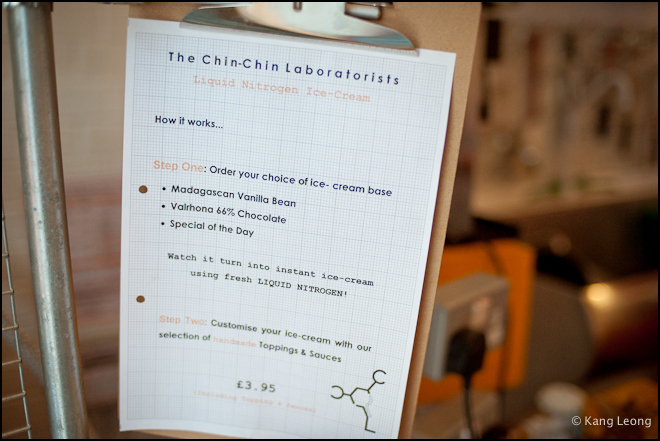 The Chin-Chin Laboratorists
Liquid Nitrogen Ice-Cream
How it works...
Step One: Order your choice of ice- cream base
• Madagascan Vanilla Bean
• Valrhona 66% Chocolate
• Special of the Day
Watch it turn into instant ice-cream
using fresh LIQUID NITROGEN!
Step Two: Customise your ice-cream with our
selection of handmade Toppings & Sauces
£3.95
© Kang Leong